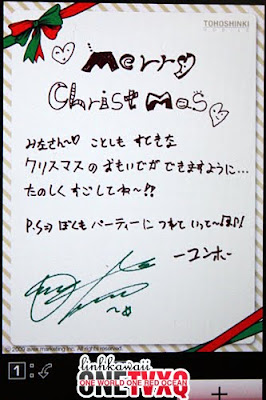 TOHOSHINKI
Merry
Christmas
みなさん〜♡ ことしも すてきな
クリスマスの おもいでが できますように…
たのしく すごしてね〜!!
P.S⇒ ぼくも パーティーに つれて いって〜!!
ーユンホー
© 2009 avex marketing Inc. All rights reserved.
1
linhkawaii
ONETVXQ
ONE WORLD ONE RED OCEAN